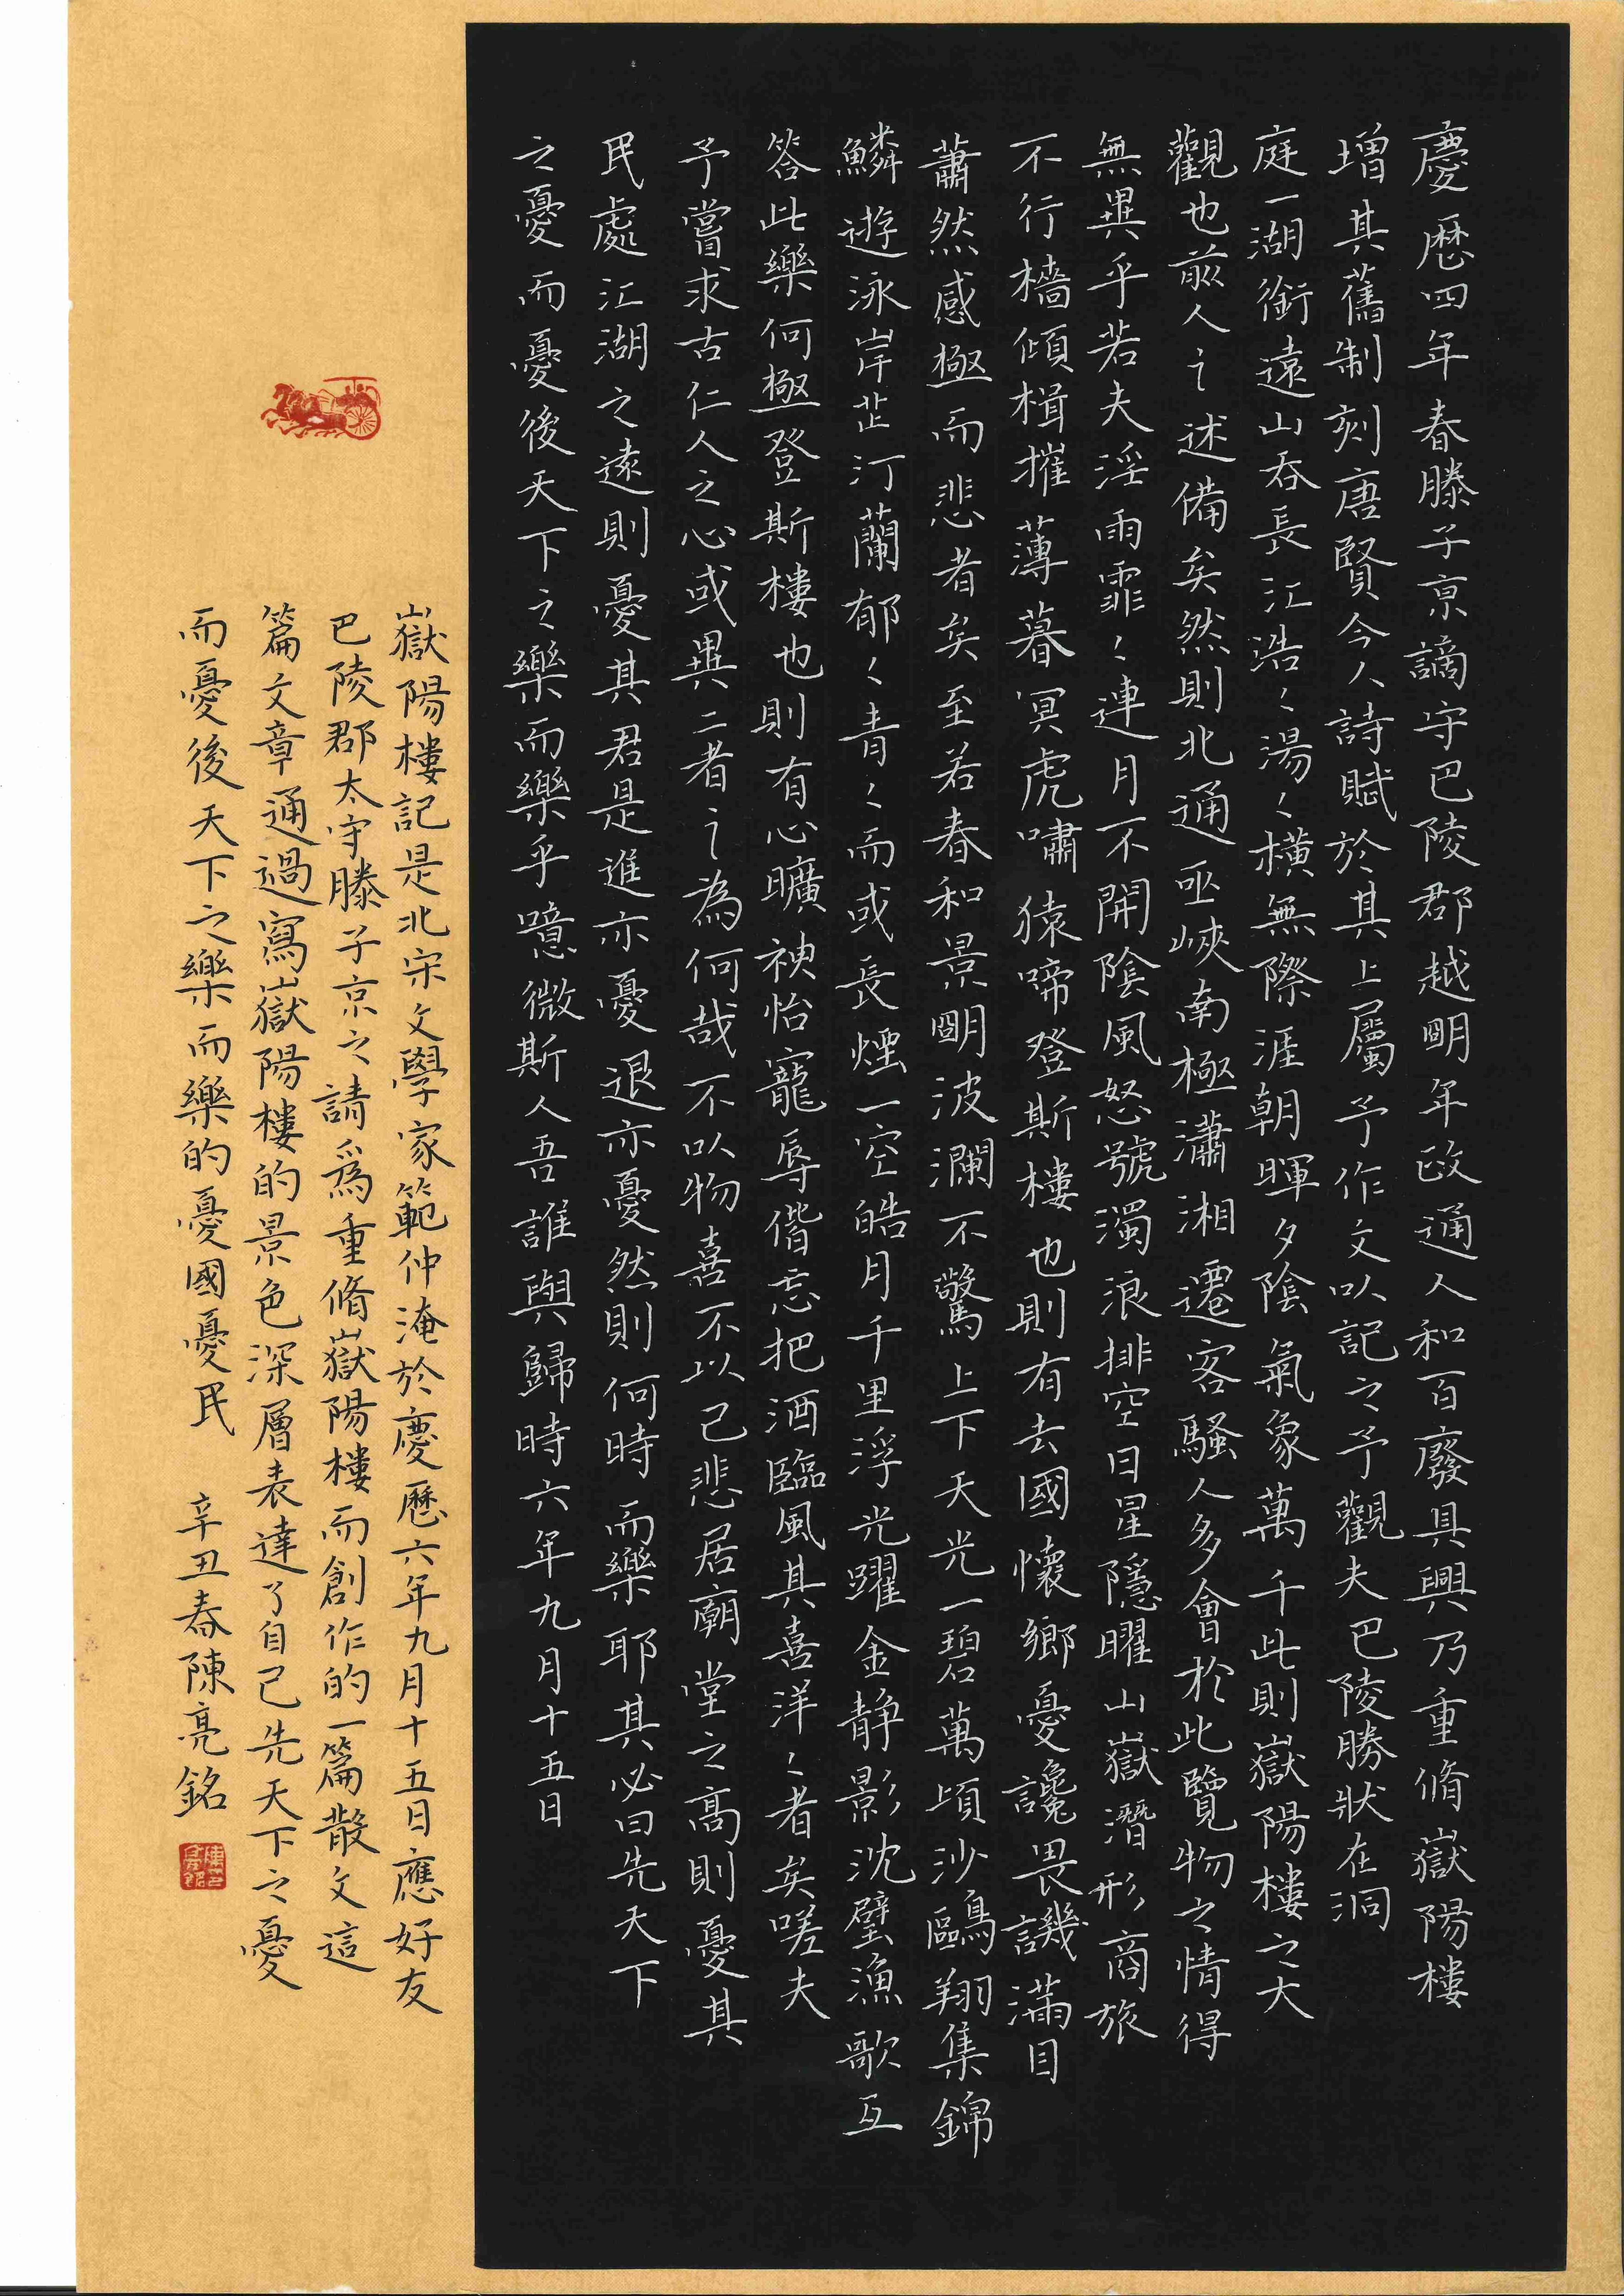 慶歷四年春滕子京謫守巴陵郡越明年政通人和百廢具興乃重脩嶽陽樓
增其舊制刻唐賢今人詩賦於其上屬予作文以記之予觀夫巴陵勝狀在洞
庭一湖銜遠山吞長江浩〻湯〻橫無際涯朝暉夕陰氣象萬千此則嶽陽樓之大
觀也前人之述備矣然則北通巫峽南極瀟湘遷客騷人多會於此覽物之情得
無異乎若夫淫雨霏〻連月不開陰風怒號濁浪排空日星隱曜山嶽潛形商旅
不行檣傾楫摧薄暮冥虎嘯猿啼登斯樓也則有去國懷鄉憂讒畏譏滿目
蕭然感極而悲者矣至若春和景明波瀾不驚上下天光一碧萬頃沙鷗翔集錦
鱗遊泳岸芷汀蘭郁〻青〻而或長煙一空皓月千里浮光躍金静影沈璧漁歌互
答此樂何極登斯樓也則有心曠神怡寵辱偕忘把酒臨風其喜洋〻者矣嗟夫
予嘗求古仁人之心或異二者之為何哉不以物喜不以己悲居廟堂之高則憂其
民處江湖之遠則憂其君是進亦憂退亦憂然則何時而樂耶其必曰先天下
之憂而憂後天下之樂而樂乎噫微斯人吾誰與歸時六年九月十五日
嶽陽樓記是北宋文學家範仲淹於慶歷六年九月十五日應好友
巴陵郡太守滕子京之請爲重脩嶽陽樓而創作的一篇散文這
篇文章通過寫嶽陽樓的景色深層表達了自己先天下之憂
而憂後天下之樂而樂的憂國憂民 辛丑春陳亮銘